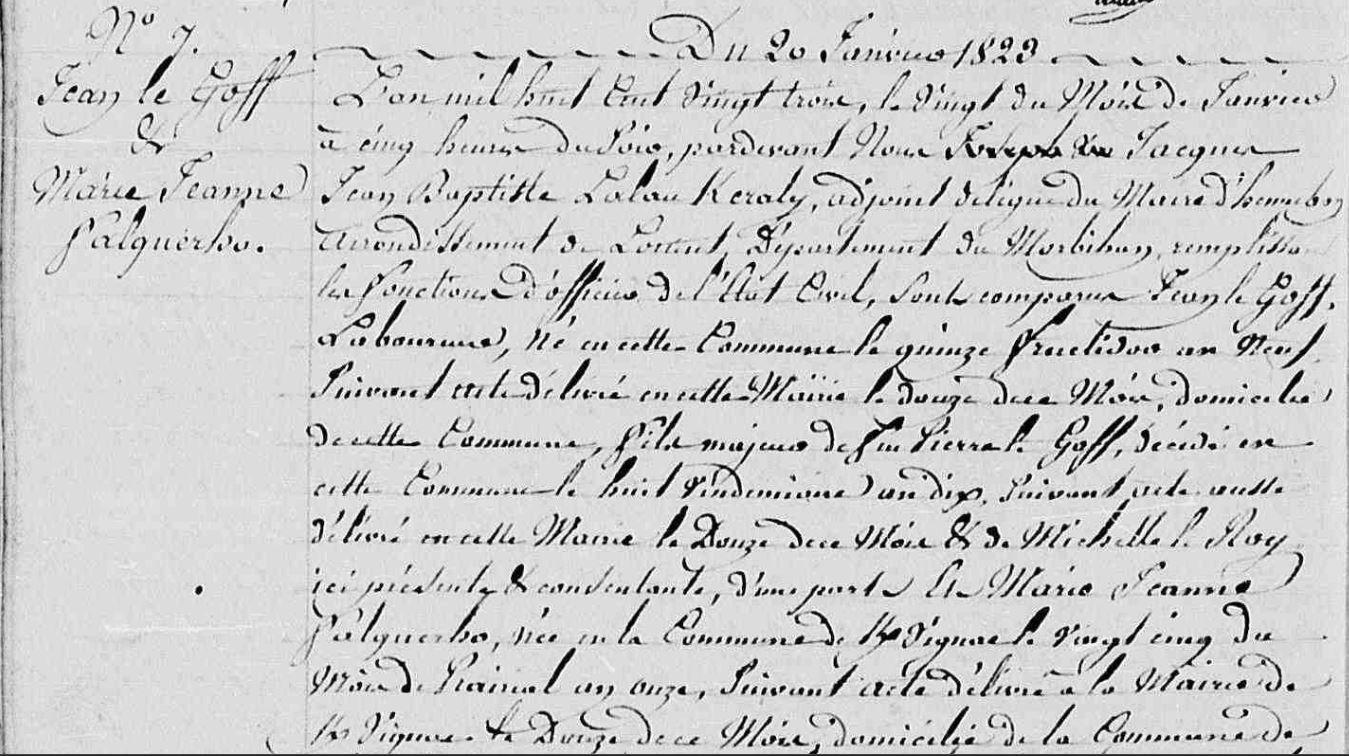 N° 7.
Jean le Goff
&
Marie Jeanne
falquerho.
Du 20 Janvier 1823
L'an mil huit Cent Vingt trois, le Vingt du Mois de Janvier
à cinq heures du Soir, pardevant Nous Jacques
Jean Baptiste Lalau Keraly, adjoint délégué du Maire d'hennebon
arrondissement de Lorient, Département du Morbihan, remplissan
les fonctions d'officier de l'Etat Civil, Sont comparus Jean le Goff,
Laboureur, né en cette Commune le quinze fructidor an Neuf
Suivant acte délivré en cette Mairie le douze de ce Mois, domicilié
de cette Commune, fils majeur de feu Pierre le Goff, décédé en
cette Commune le huit Vindemiaire an dix, Suivant acte aussi
délivré en cette Mairie le Douze de ce Mois & de Michelle le Roy
ici présente & consentante, d'une part Et Marie Jeanne
falquerho, née en la Commune de Vignac le Vingt cinq du
Mois de Prairial an onze, Suivant acte délivré à la Mairie de
Vignac le Douze de ce Mois, domiciliée de la Commune de